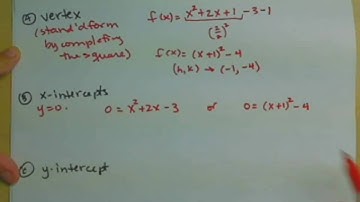 (A) vertex
(stand'd form
by completing
the square)
f(x) = x² + 2x + 1 - 3 - 1
(2/2)²
f(x) = (x+1)² - 4
(h, k) → (-1, -4)
(B) x-intercepts
y = 0.
0 = x² + 2x - 3 or 0 = (x+1)² - 4
(C) y-intercept